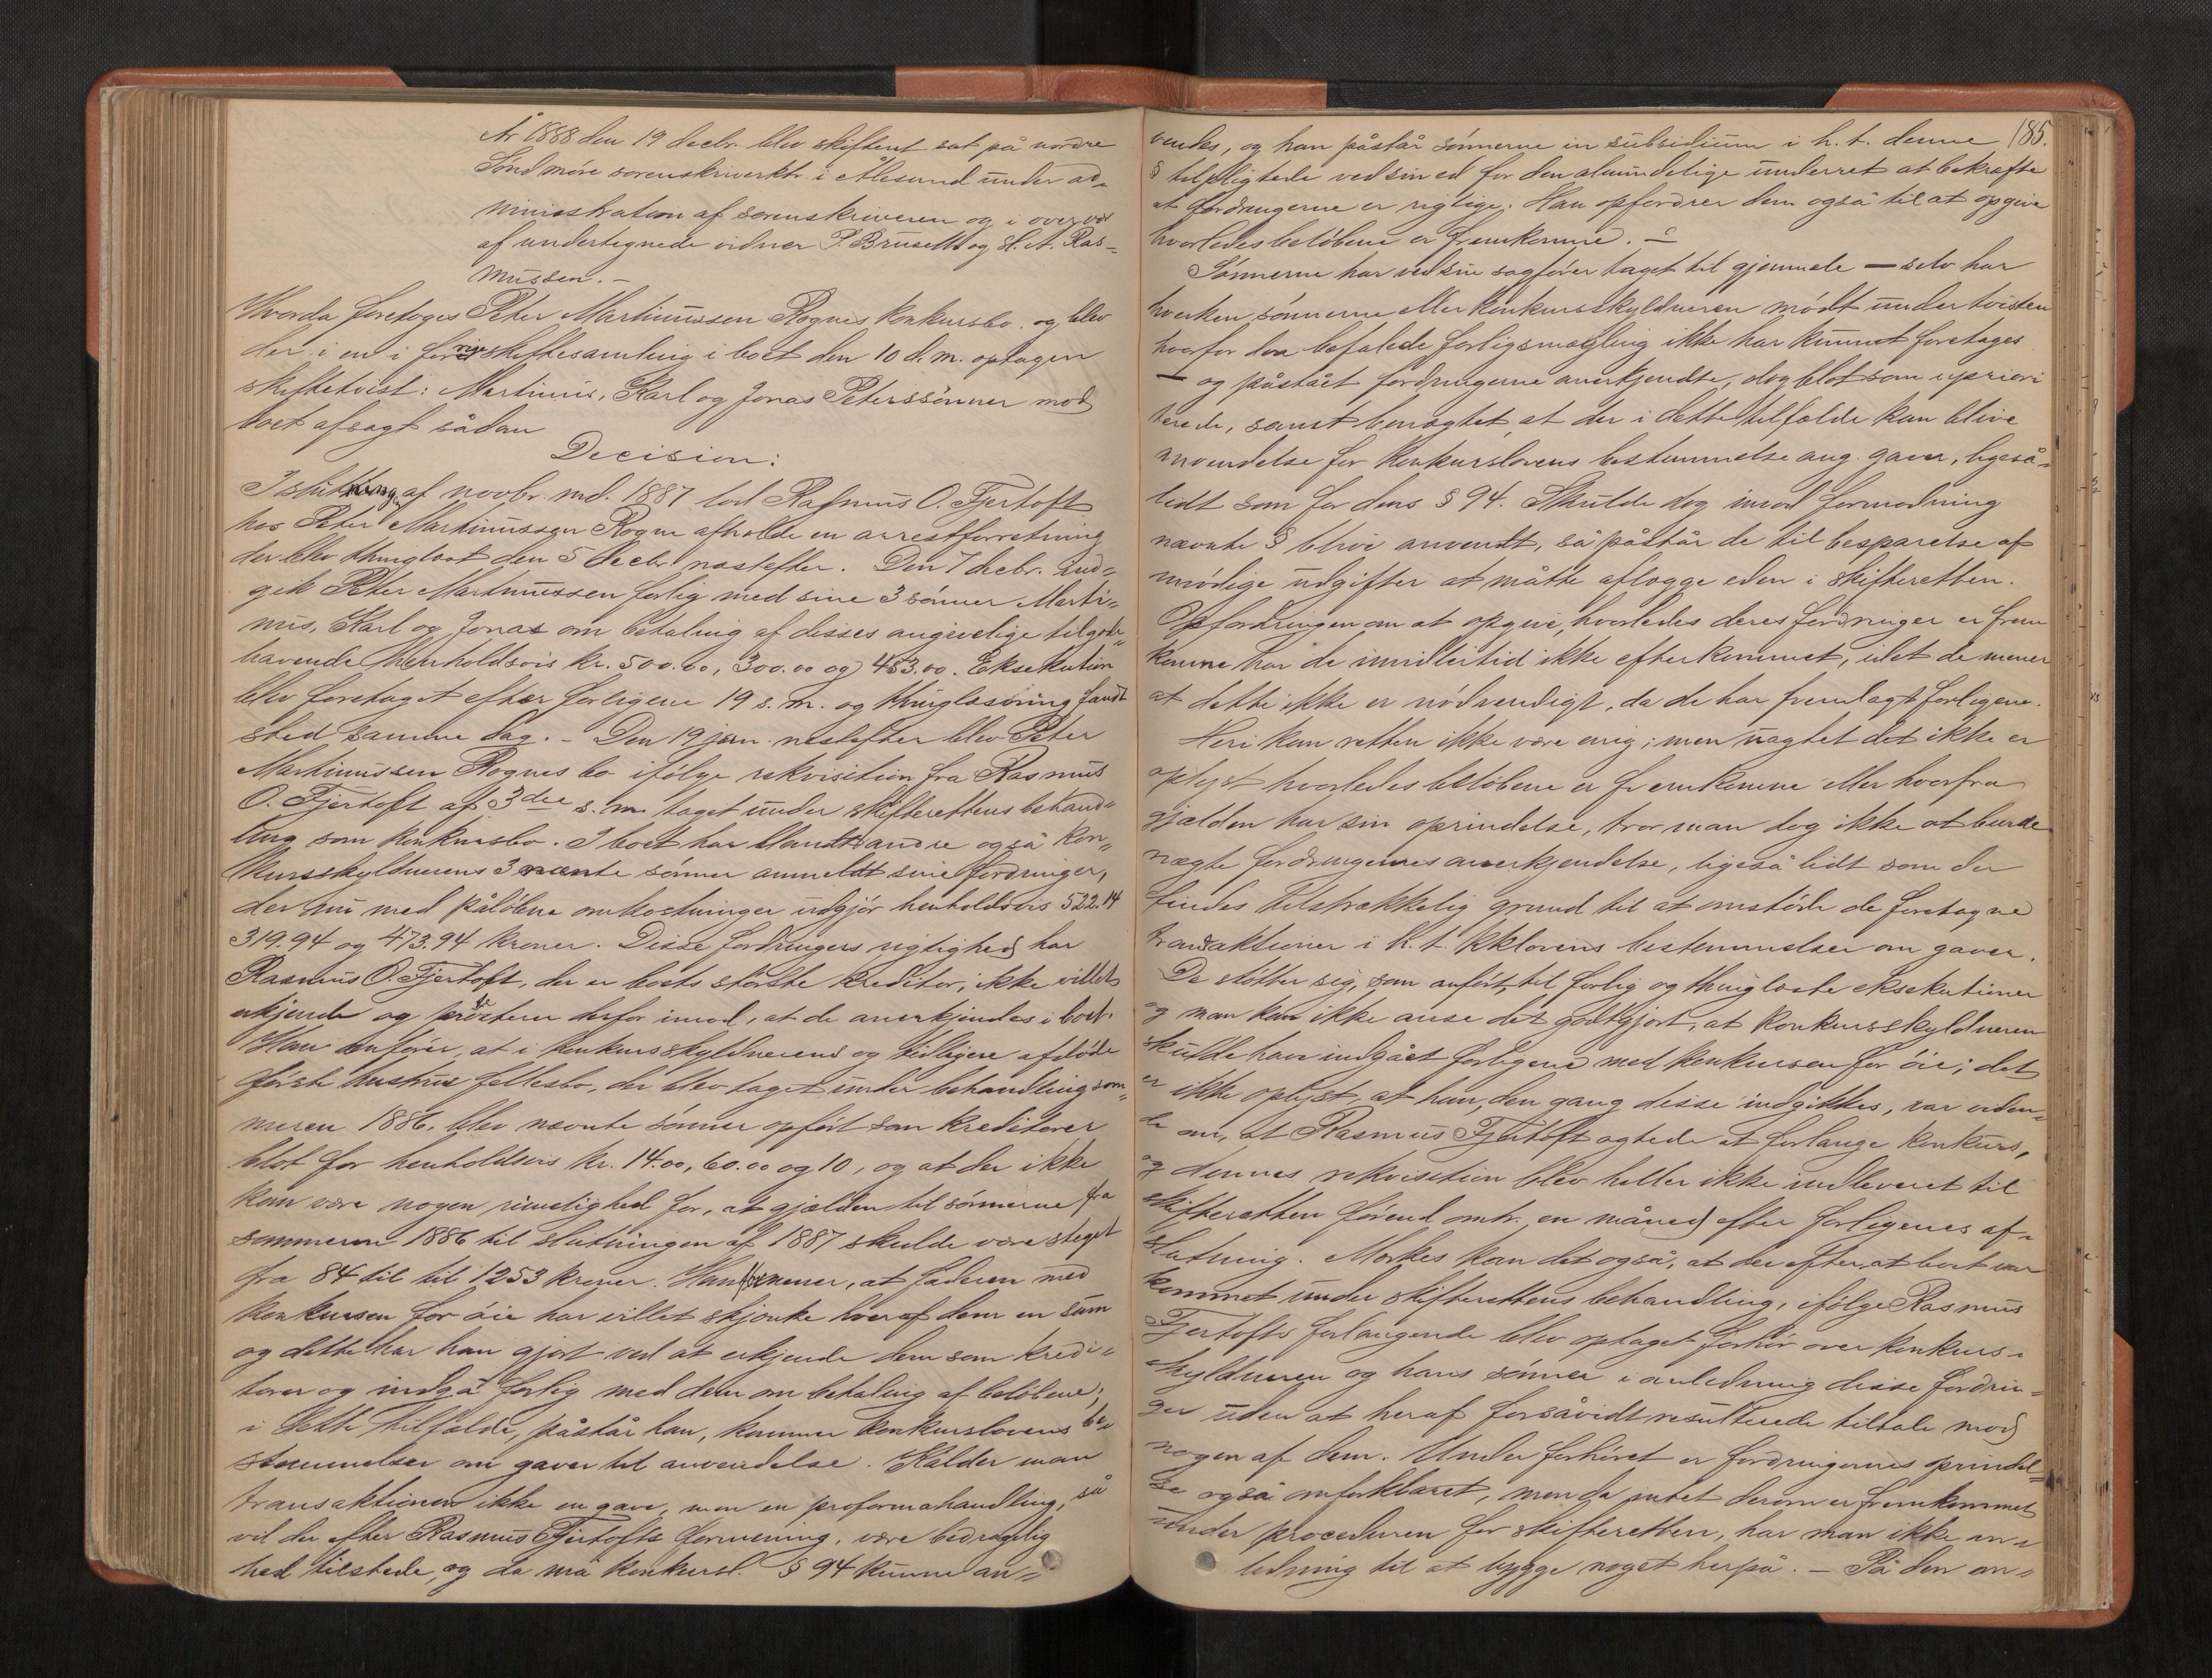 År 1888 den 19 decbr. blev skifteret sat på nordre
Søndmøre sorenskriverktr. i Ålesund under ad-
ministration af sorenskriveren og i overvær
af undertegnede vidner P. Brusett og H. A. Ras-
mussen. -
Hvorda foretoges Peter Martinussen Rognes konkursbo og blev
der i en i forrige skiftesamling i boet den 10 d. m. optagen
skiftetvist: Martinus, Karl og Jonas Peterssønner mod
boet afsagt sådan
Decision:
I slutningen af novbr. md. 1887 lod Rasmus O. Fjertoft
hos Peter Martinussen Rogne afholde en arrestforretning
der blev thinglæst den 5 decbr. næstefter. Den 7 decbr. ind-
gik Peter Martinussen forlig med sine 3 sønner Marti-
nus, Karl og Jonas om betaling af disses angivelige tilgode-
havende henholdsvis kr. 500.00, 300.00 og 453.00. Eksekution
blev foretaget efter forligene 19 s. m. og thinglæsning fandt
sted samme dag. - Den 19 jan. nestefter blev Peter
Martinussen Rognes bo ifølge rekvisition fra Rasmus
O. Fjertoft af 3die s. m. taget under skifterettens behand-
ling som konkursbo. I boet har blandt andre også kon-
kursskyldnerens 3 nævnte sønner anmeldt sine fordringer,
der nu med påløbne omkostninger udgjør henholdsvis 522.14
319.94 og 473.94 kroner. Disse fordringers rigtighed har
Rasmus O. Fjertoft, der er boets største kreditor, ikke villet
erkjende og protesterer derfor imod, at de anerkjendes i boet.
Han anfører, at i konkursskyldnerens og tidligere afdøde
første hustrus fellesbo, der blev taget under behandling som-
meren 1886, blev nævnte sønner opført som kreditorer
blot for henholdsvis kr. 14.00, 60.00 og 10, og at der ikke
kan være nogen rimelighed for, at gjælden til sønnerne fra
sommeren 1886 til slutningen af 1887 skulde være steget
fra 84 til til 1253 kroner. Han formener, at faderen med
konkursen for øie har villet skjenke hver af dem en sum
og dette har han gjort ved at erkjende dem som kredi-
torer og indgå forlig med dem om betaling af beløbene;
i dette tilfælde, påstår han, kommer konkurslovens be-
stemmelser om gaver til anvendelse. Kalder man
transaktionen ikke en gave, men en proformahandling, så
vil der efter Rasmus Fjertofts formening, være bedragelig-
hed tilstede, og da må konkursl. § 94 kunne an-
185.
vendes, og han påstår sønnerne in subsidium i h. t. denne
§ tilpligtede ved sin ed for den almindelige underret at bekræfte
at fordringerne er rigtige. Han opfordrer dem også til at opgive
hvorledes beløbene er fremkomne. -
Sønnerne har ved sin sagfører taget til gjenmæle — selv har
hverken sønnerne eller konkursskyldneren mødt under tvisten
hvorfor den befalede forligsmægling ikke har kunnet foretages
— og påstået fordringerne anerkjendte, dog blot som upriori
terede, samt benægtet, at der i dette tilfælde kan blive
anvendelse for konkurslovens bestemmelse ang. gaver, ligeså-
lidt som for dens § 94. Skulde dog imod formodning
nævnte § blive anvendt, så påstår de til besparelse af
unødige udgifter at måtte aflægge eden i skifteretten.
Opfordringen om at opgive, hvorledes deres fordringer er frem
komne har de imidlertid ikke efterkommet, idet de mener
at dette ikke er nødvendigt, da de har fremlagt forligene.
Heri kan retten ikke være enig; men uagtet det ikke er
oplyst hvorledes beløbene er fremkomne eller hvorfra
gjælden har sin oprindelse, tror man dog ikke at burde
nægte fordringernes anerkjendelse, ligeså lidt som der
findes tilstrækkelig grund til at omstøde de foretagne
transaktioner i h. t. kklovens bestemmelser om gaver.
De støtter sig, som anført, til forlig og thinglæste eksekutioner
og man kan ikke anse det godtgjort, at konkursskyldneren
skulde have indgået forligene med konkursen for øie; det
er ikke oplyst, at han, den gang disse indgikkes, var viden-
de om, at Rasmus Fjertoft agtede at forlange konkurs,
og dennes rekvisition blev heller ikke indleveret til
skifteretten førend omtr. en måned efter forligenes af-
slutning. Mærkes kan det også, at der efter, at boet var
kommet under skifterettens behandling, ifølge Rasmus
Fjertofts forlangende blev optaget forhør over konkurs-
skyldneren og hans sønner i anledning disse fordrin-
ger uden at heraf forsåvidt resulterede tiltale mod
nogen af dem. Under forhøret er fordringernes oprindel-
se også omforklaret, men da intet derom er fremkommet
under proceduren for skifteretten, har man ikke an-
ledning til at bygge noget herpå. - På den an-